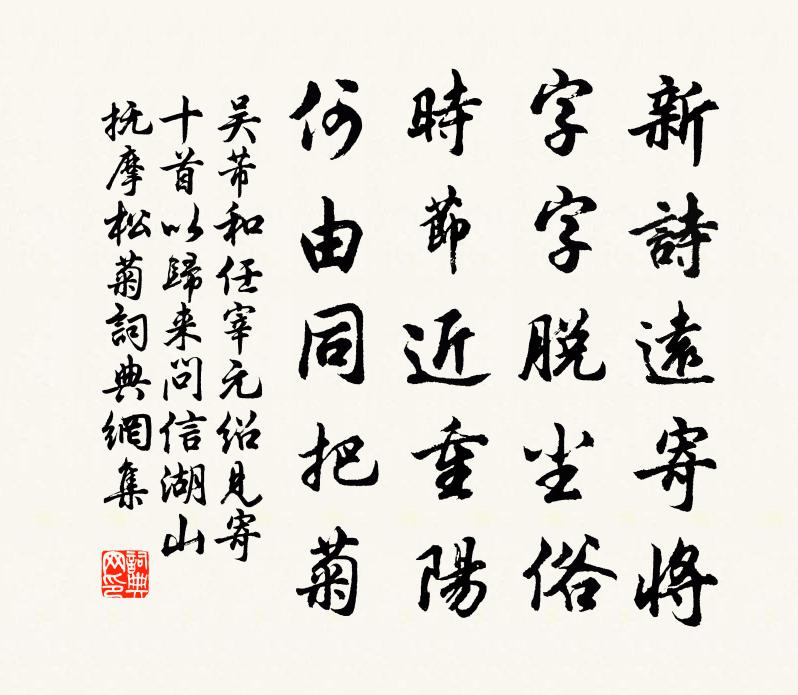 新詩遠寄將
字字脱尘俗
時節近重陽
何由同把菊
吴芾和任宰元绍見寄
十首以歸来问信湖山
抚摩松菊詞典網集
詞典网印